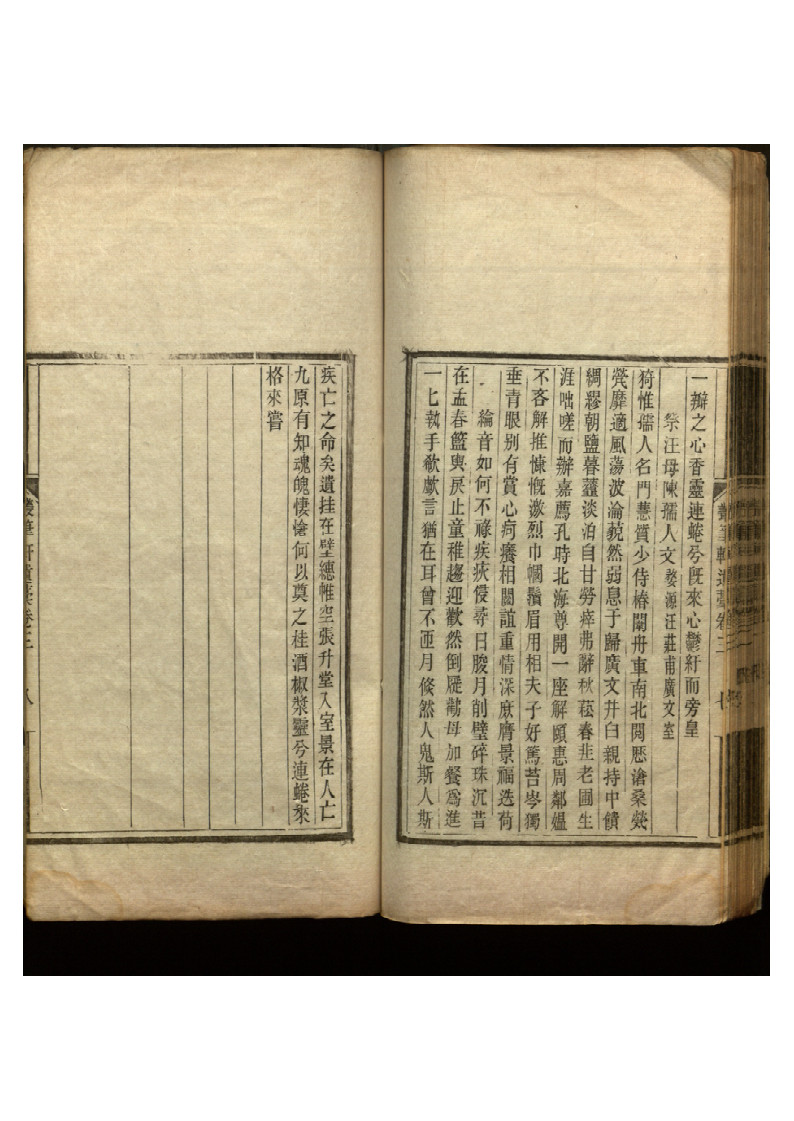 一瓣之心香靈連蜷兮既來心鬱紆而旁皇
祭汪母陳孺人文 婺源汪莊甫廣文室
猗惟孺人名門慧質少侍椿闈舟車南北閱歷滄桑煢
煢靡適風蕩波淪藐然弱息于歸廣文井臼親持中饋
綢繆朝鹽暮虀淡泊自甘勞瘁弗辭秋菘春韭老圃生
涯咄嗟而辦嘉薦孔時北海尊開一座解頤惠周鄰媼
不吝解推慷慨激烈巾幗鬚眉用相夫子好篤苔岑獨
垂青眼别有賞心疴癢相關誼重情深庶膺景福迭荷
綸音如何不祿疾疢侵尋日朘月削璧碎珠沉昔
在孟春籃輿戾止童稚趨迎歡然倒屣勸母加餐爲進
一匕執手欷歔言猶在耳曾不匝月倏然人鬼斯人斯
疾亡之命矣遺挂在壁繐帷空張升堂入室景在人亡
九原有知魂魄悽愴何以奠之桂酒椒漿靈兮連蜷來
格來嘗
軒遺稾卷三
八